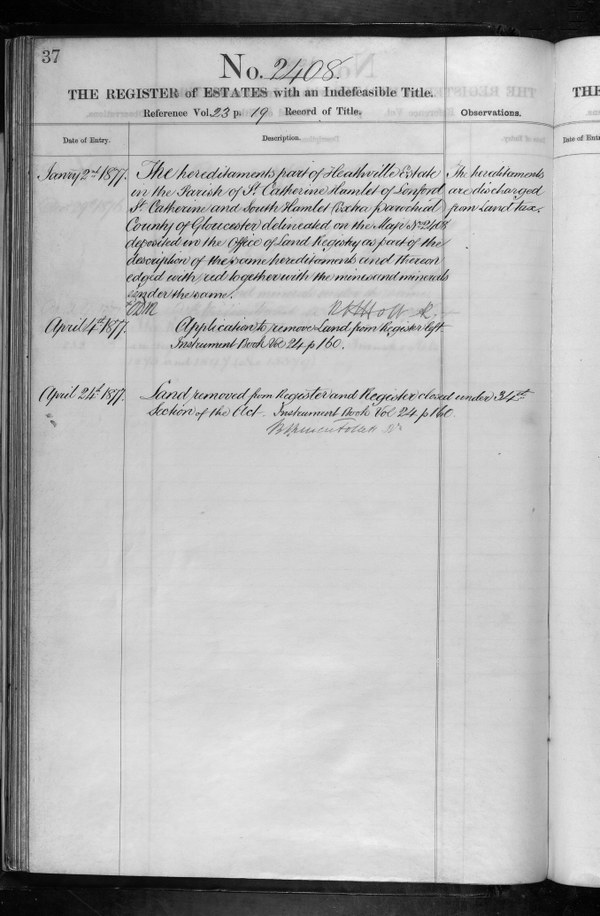 37
No. 2408.
THE REGISTER of ESTATES with an Indefeasible Title.
Reference Vol. 23 p. 19 Record of Title.
Observations.
Date of Entry.
Description.
Janry 2nd 1877.
The hereditaments part of Heathville Estate
in the Parish of St. Catherine Hamlet of Longford
St. Catherine and South Hamlet Extra parochial
County of Gloucester delineated on the Map No. 2408
deposited in the Office of Land Registry as part of the
description of the same hereditaments and thereon
edged with red together with the mines and minerals
under the same.
The hereditaments
are discharged
from Land tax.
R H Holt
April 4th 1877.
Application to remove Land from Register left
Instrument Book Vol 24 p 160.
April 24th 1877
Land removed from Register and Register closed under 34th
Section of the Act. Instrument Book Vol 24 p 160.
THE
Date of Entr